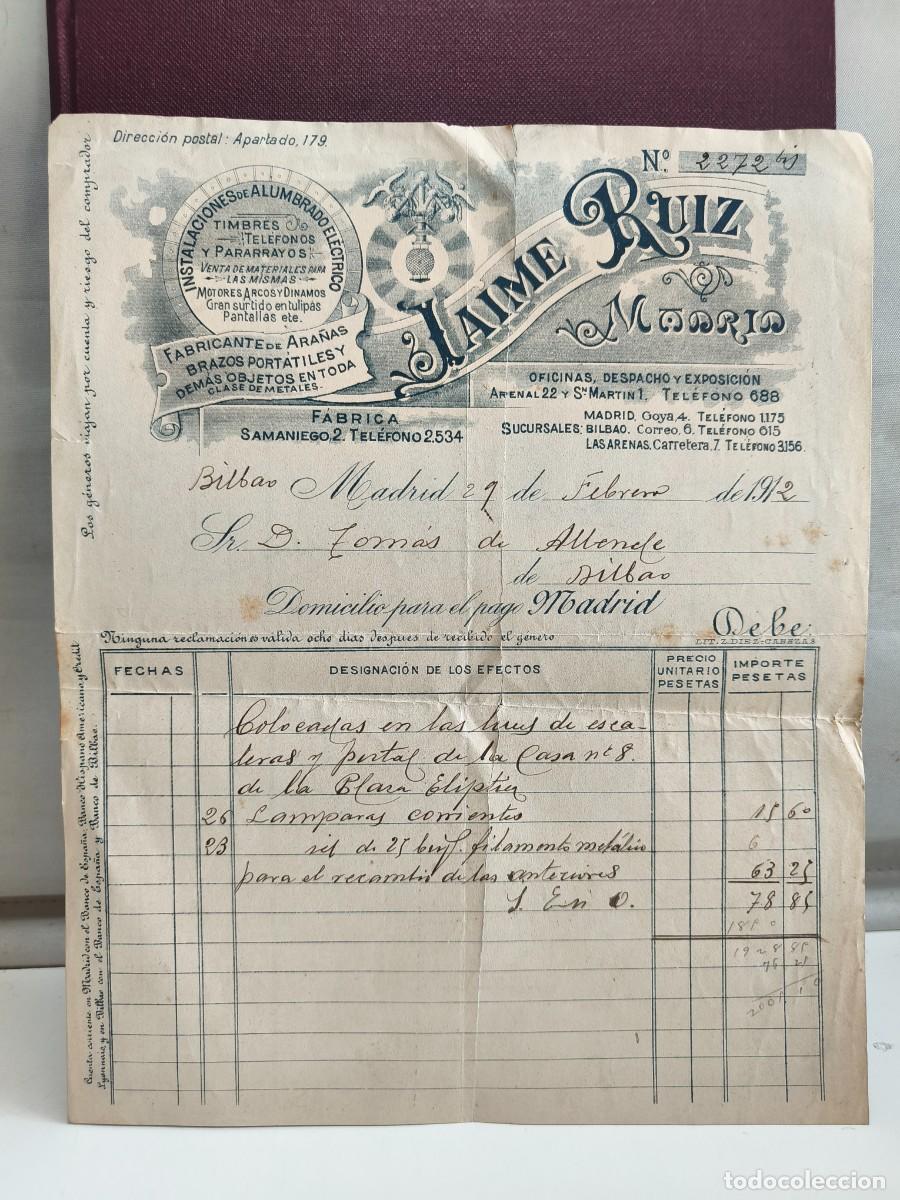 Dirección postal: Apartado, 179.
Nº 2272
INSTALACIONES DE ALUMBRADO ELÉCTRICO
TIMBRES
TELÉFONOS
Y PARARRAYOS
VENTA DE MATERIALES PARA
LAS MISMAS
MOTORES ARCOS Y DINAMOS
Gran surtido en tulipas
Pantallas etc.
FABRICANTE DE ARAÑAS
BRAZOS PORTÁTILES Y
DEMÁS OBJETOS EN TODA
CLASE DE METALES.
JAIME RUIZ
MADRID
FÁBRICA
SAMANIEGO, 2. TELÉFONO 2.534
OFICINAS, DESPACHO Y EXPOSICIÓN
ARENAL 22 Y Sn MARTIN 1. TELÉFONO 688
MADRID, Goya, 4. TELÉFONO 1.175
SUCURSALES: BILBAO. Correo, 6. TELÉFONO 615
LAS ARENAS, Carretera, 7. TELÉFONO 3.156.
Los géneros viajan por cuenta y riesgo del comprador.
Bilbao Madrid 29 de Febrero de 1912
Sr. D. Tomás de Allende
de Bilbao
Domicilio para el pago Madrid
Debe:
LIT. Z. DIEZ-CABEZAS
Ninguna reclamación es válida ocho días después de recibido el género
Cuenta corriente en Madrid con el Banco de España, Banco Hispano Americano y Credit
Lyonnais, y en Bilbao con el Banco de España y Banco de Bilbao.
FECHAS
DESIGNACIÓN DE LOS EFECTOS
PRECIO UNITARIO PESETAS
IMPORTE PESETAS
Colocadas en las luces de esca-
leras y portal de la Casa nº 8.
de la Plaza Elíptica
26 Lamparas corrientes 15 60
23 de 25 filamento metálico 6
para el recambio de las anteriores 63 25
S. E. ú O. 78 85
185 0
1928 85
75 25
todocoleccion